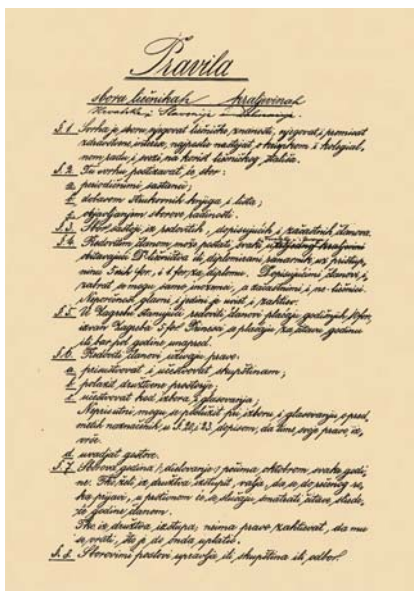 Pravila
sbora liečnikah kraljevinah
Hrvatske i Slavonije
§. 1. Svrha je sboru njegovat liečničku znanost, njegovat i promicat
zdravstvene interese, najposlie nastojat o složnom i kolegial-
nom radu i poći na korist liečničkog stališa.
§. 2. Tu svrhu postizavat će sbor:
a, periodičnimi sastanci;
b, dobavom stručnih knjiga i lista;
c, objavljanjem sborove radinosti.
§. 3. Sbor sastoji iz redovitih, dopisujućih i začastnih članova.
§. 4. Redovitim članom može postati svaki u kraljevini
obitavajući Dr liečničtva ili diplomirani ranarnik uz pristup-
ninu 5 for. i 1 for. za diplomu. Dopisujućimi članovi
se mogu samo inozemci, a začastnimi i ne-liečnici.
Neporočnost, glavni i jedini je uvjet
§. 5. U Zagrebu stanujući redoviti članovi plaćaju godišnjih for.
izvan Zagreba 5 for. Prinosi se plaćaju za čitavu godinu
ili bar pol godine unapred.
§. 6. Redoviti članovi uživaju pravo:
a, prisustvovat i učestvovat skupštinam;
b, polazit družtvene prostorije;
c, učestvovat kod izbora i glasovanja;
Neprisutni mogu se poslužit pri izboru i glasovanju o pred-
metih naznačenih u §. 20 i 23. dopisom, da time svoje pravo iz-
vrše.
d, uvadjat goste.
§. 7. Sborova godina (djelovanje) počima oktobrom svake godi-
ne. Tko želi iz družtva izstupit, valja da se do rečenog ro-
ka prijavi, u protivnom će se slučaju smatrati čitave sliede-
će godine članom.
Tko iz družtva izstupa, neima pravo zahtievat, da mu
se vrati, što je do onda uplatio.
§. 8. Sborovimi poslovi upravlja ili skupština ili odbor.